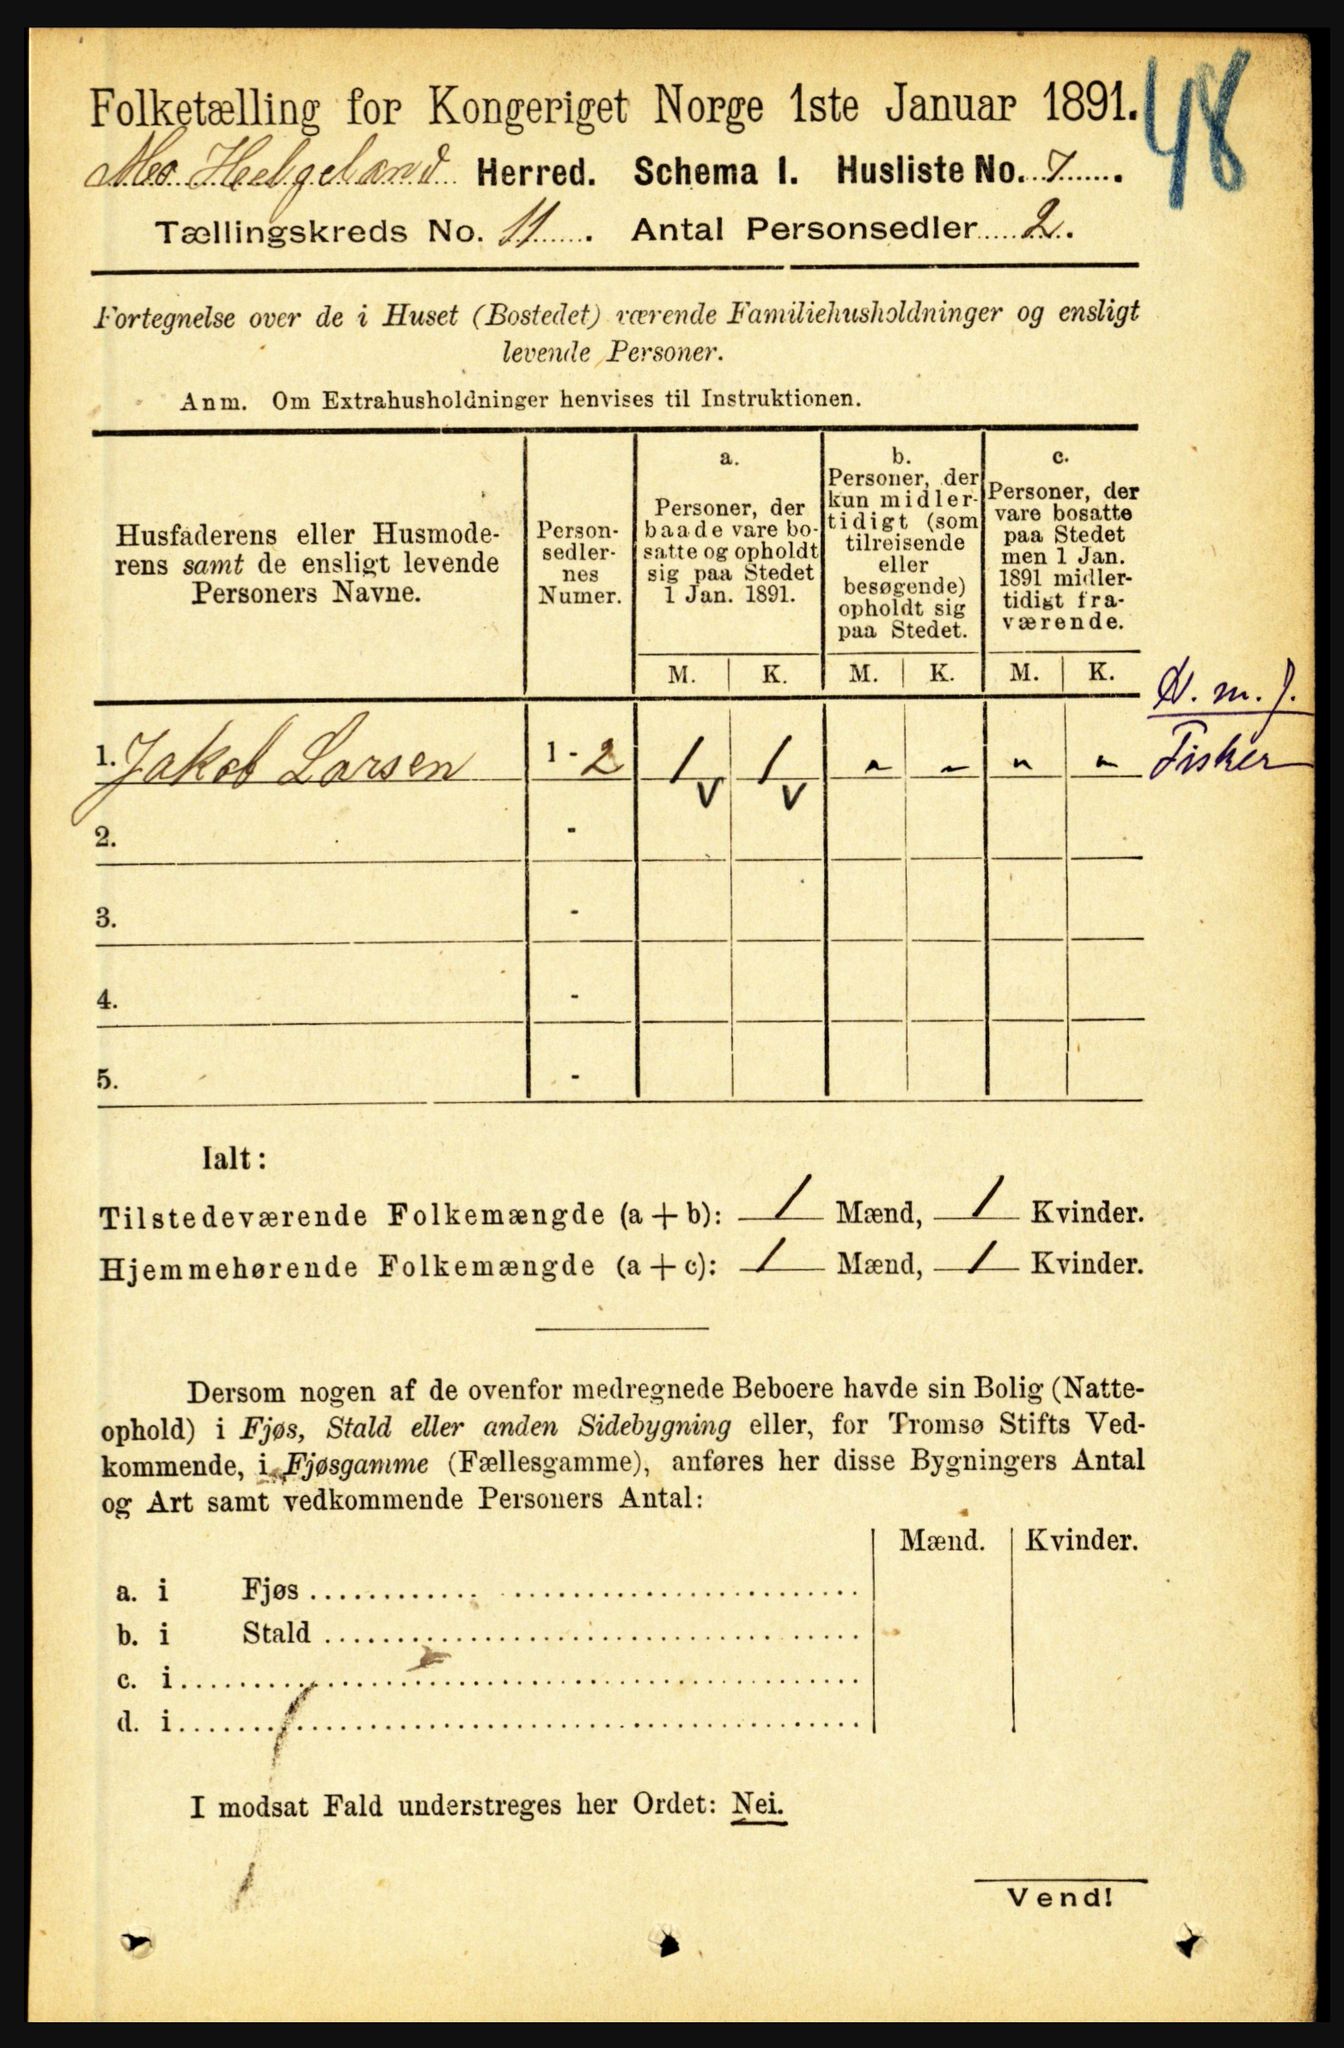 48
Folketælling for Kongeriget Norge 1ste Januar 1891.
Mo Helgeland Herred. Schema I. Husliste No. 7.
Tællingskreds No. 11. Antal Personsedler 2.
Fortegnelse over de i Huset (Bostedet) værende Familiehusholdninger og ensligt
levende Personer.
Anm. Om Extrahusholdninger henvises til Instruktionen.
Husfaderens eller Husmode-
rens samt de ensligt levende
Personers Navne.
Person-
sedler-
nes
Numer.
a.
Personer, der
baade vare bo-
satte og opholdt
sig paa Stedet
1 Jan. 1891.
b.
Personer, der
kun midler-
tidigt (som
tilreisende
eller
besøgende)
opholdt sig
paa Stedet.
c.
Personer, der
vare bosatte
paa Stedet
men 1 Jan.
1891 midler-
tidigt fra-
værende.
M. K. M. K. M. K.
1. Jakob Larsen 1 - 2 1 1 - - - - Fisker
v v
2. -
3. -
4. -
5. -
Ialt:
Tilstedeværende Folkemængde (a + b): 1 Mænd, 1 Kvinder.
Hjemmehørende Folkemængde (a + c): 1 Mænd, 1 Kvinder.
Dersom nogen af de ovenfor medregnede Beboere havde sin Bolig (Natte-
ophold) i Fjøs, Stald eller anden Sidebygning eller, for Tromsø Stifts Ved-
kommende, i Fjøsgamme (Fællesgamme), anføres her disse Bygningers Antal
og Art samt vedkommende Personers Antal:
Mænd. Kvinder.
a. i Fjøs
b. i Stald
c. i
d. i
I modsat Fald understreges her Ordet: Nei.
Vend!